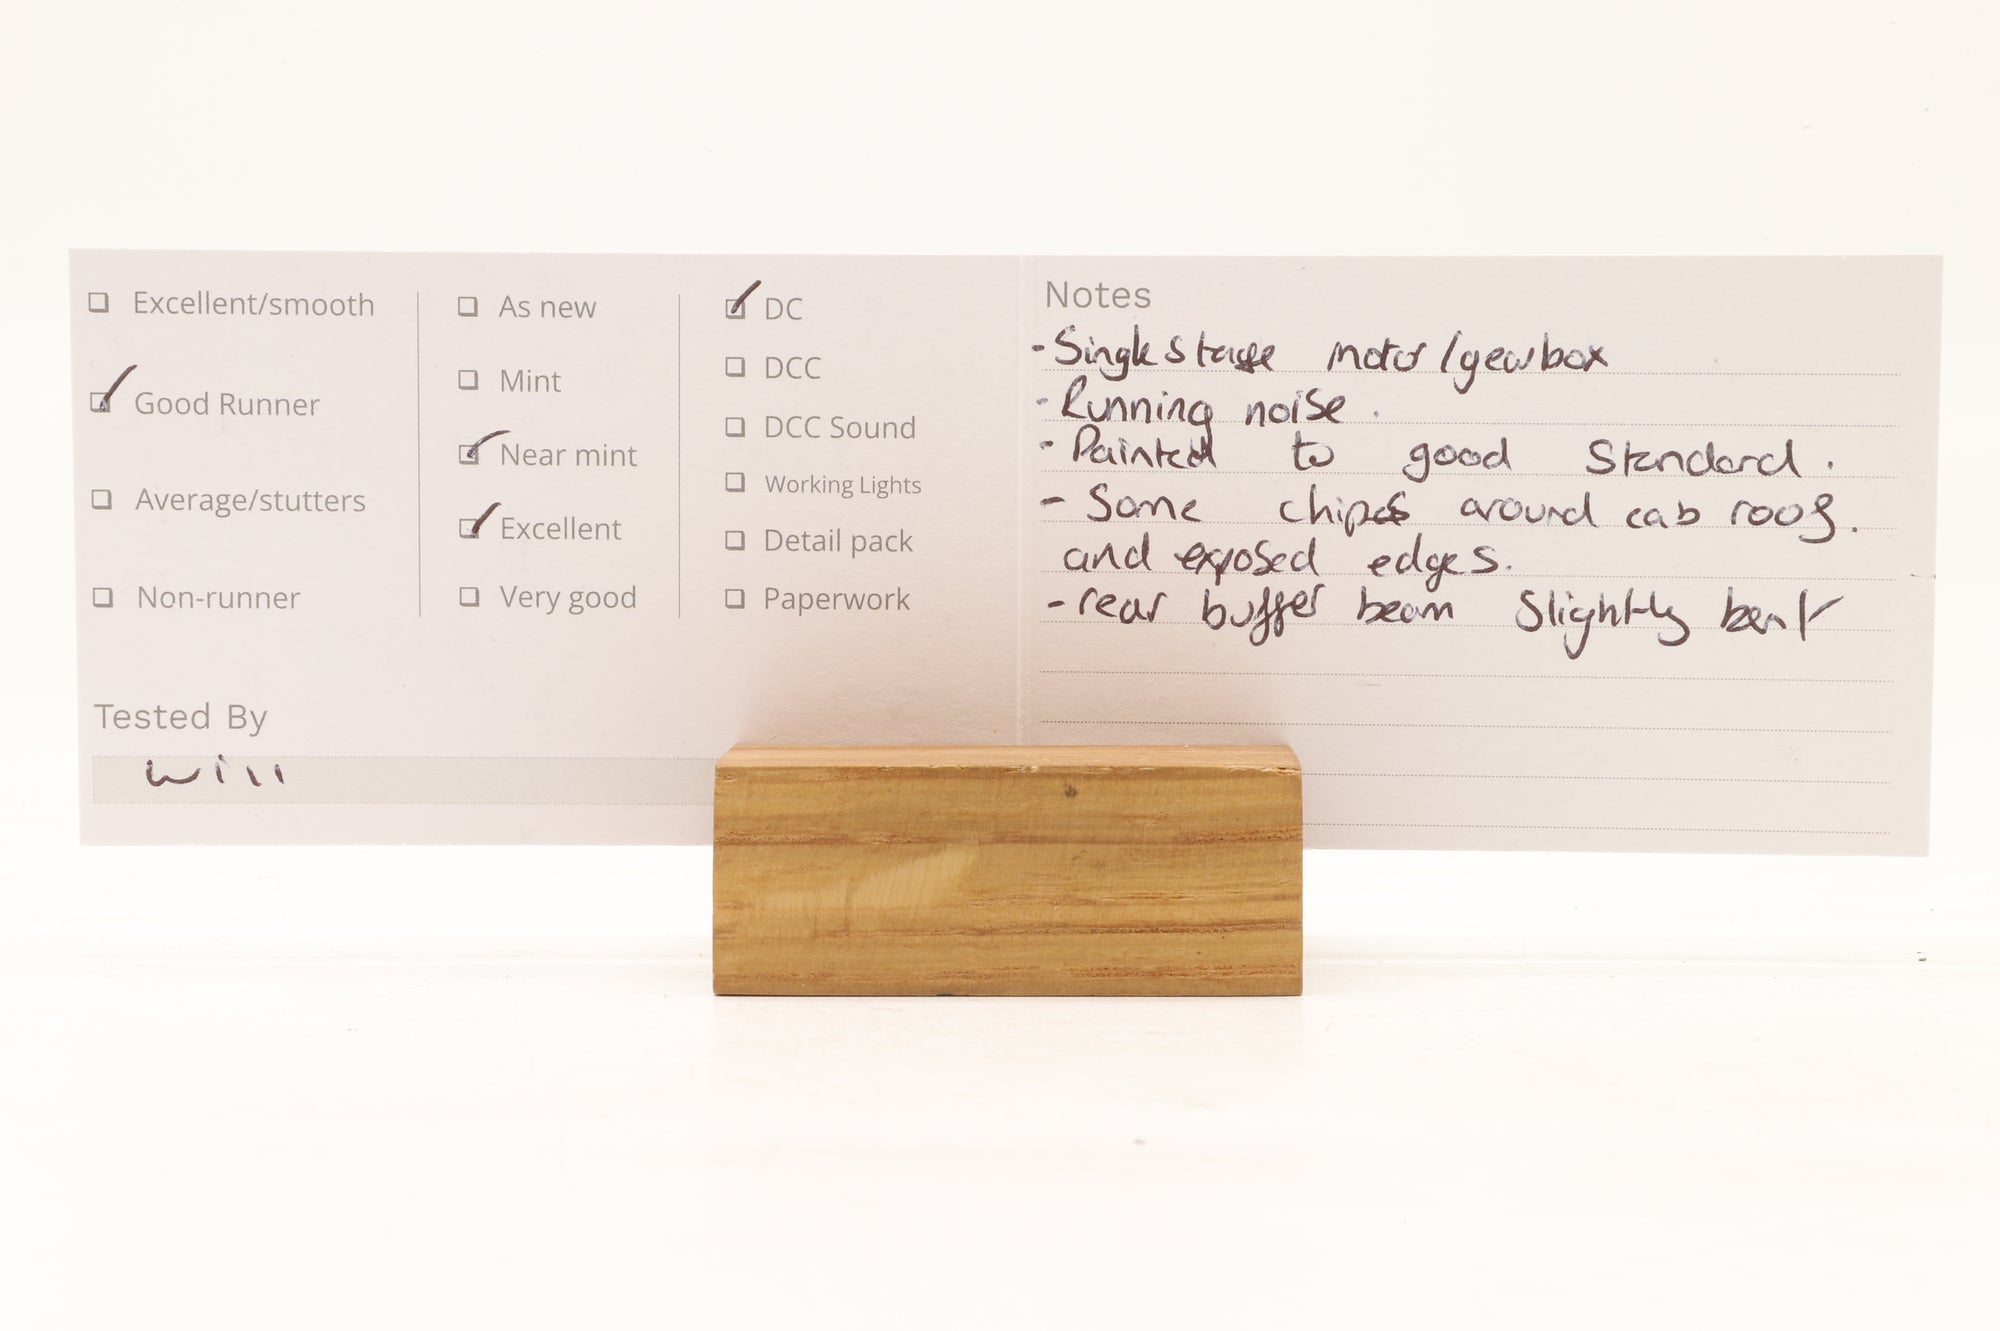 Excellent/smooth
Good Runner
Average/stutters
Non-runner
As new
Mint
Near mint
Excellent
Very good
DC
DCC
DCC Sound
Working Lights
Detail pack
Paperwork
Tested By
Will
Notes
- Single stage motor/gearbox
- Running noise.
- Painted to good Standard.
- Some chips around cab roof.
and exposed edges.
- rear buffer beam Slightly bent